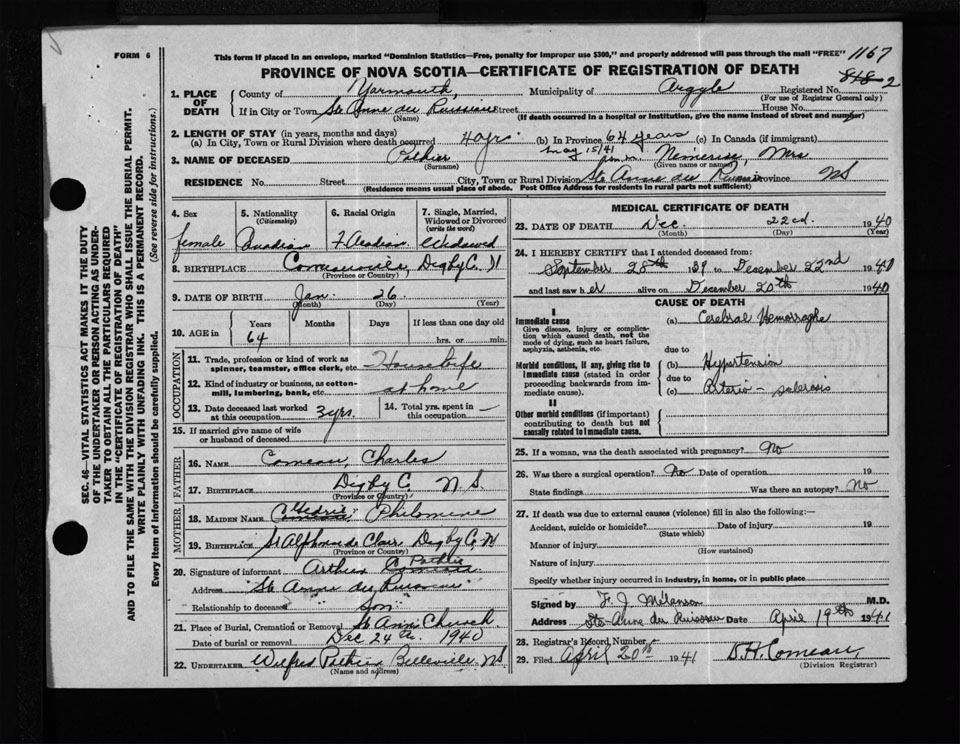 FORM 6
This form if placed in an envelope, marked "Dominion Statistics—Free, penalty for improper use $300," and properly addressed will pass through the mail "FREE"
1167
PROVINCE OF NOVA SCOTIA—CERTIFICATE OF REGISTRATION OF DEATH
848 2
1. PLACE OF DEATH
County of Yarmouth Municipality of Argyle Registered No.
(For use of Registrar General only)
If in City or Town Ste Anne du Ruisseau Street House No.
(Name) (If death occurred in a hospital or institution, give the name instead of street and number)
2. LENGTH OF STAY (in years, months and days)
(a) In City, Town or Rural Division where death occurred 40 yrs (b) In Province 64 years (c) In Canada (if immigrant)
May 15/41
3. NAME OF DECEASED Pothier Mrs
(Surname) (Given name or names)
RESIDENCE No. Street City, Town or Rural Division Ste Anne du Province NS
(Residence means usual place of abode. Post Office Address for residents in rural parts not sufficient)
4. Sex
female
5. Nationality
(Citizenship)
Canadian
6. Racial Origin
F. Acadian
7. Single, Married, Widowed or Divorced
(write the word)
Widowed
8. BIRTHPLACE Comeauville, Digby C.
(Province or Country)
9. DATE OF BIRTH Jan. 26
(Month) (Day) (Year)
10. AGE in
Years Months Days If less than one day old
64 hrs. or min.
OCCUPATION
11. Trade, profession or kind of work as spinner, teamster, office clerk, etc. Housewife
12. Kind of industry or business, as cotton-mill, lumbering, bank, etc. at home
13. Date deceased last worked at this occupation 3 yrs. 14. Total yrs. spent in this occupation —
15. If married give name of wife or husband of deceased
FATHER
16. NAME Comeau, Charles
17. BIRTHPLACE Digby C. N.S.
(Province or Country)
MOTHER
18. MAIDEN NAME Philomene
19. BIRTHPLACE St Alphonse de Clare Digby Co, N
(Province or Country)
20. Signature of informant Arthur Pothier
Address Ste Anne du Ruisseau
Relationship to deceased Son
21. Place of Burial, Cremation or Removal St Ann Church
Date of burial or removal Dec 24th. 1940
22. UNDERTAKER Wilfred Pothier Belleville NS
(Name and address)
MEDICAL CERTIFICATE OF DEATH
23. DATE OF DEATH Dec. 22nd. 1940
(Month) (Day) (Year)
24. I HEREBY CERTIFY that I attended deceased from:
September 28th 1939 to December 22nd 1940
and last saw her alive on December 20th 1940
CAUSE OF DEATH
I
Immediate cause
Give disease, injury or complication which caused death, not the mode of dying, such as heart failure, asphyxia, asthenia, etc.
(a) Cerebral Hemorraghe
due to
Morbid conditions, if any, giving rise to immediate cause (stated in order proceeding backwards from immediate cause).
(b) Hypertension
due to
(c) Arterio-sclerosis
II
Other morbid conditions (if important) contributing to death but not causally related to immediate cause.
25. If a woman, was the death associated with pregnancy? No
26. Was there a surgical operation? No Date of operation 19
State findings Was there an autopsy? No
27. If death was due to external causes (violence) fill in also the following:—
Accident, suicide or homicide? Date of injury 19
(State which)
Manner of injury
(How sustained)
Nature of injury
Specify whether injury occurred in industry, in home, or in public place
Signed by F. J. Melanson M.D.
Address Ste-Anne du Ruisseau Date April 19th 1941
28. Registrar's Record Number
29. Filed April 20th 1941 D.H. Comeau
(Division Registrar)
SEC. 46—VITAL STATISTICS ACT MAKES IT THE DUTY
OF THE UNDERTAKER OR PERSON ACTING AS UNDERTAKER TO OBTAIN ALL THE PARTICULARS REQUIRED
IN THE "CERTIFICATE OF REGISTRATION OF DEATH"
AND TO FILE THE SAME WITH THE DIVISION REGISTRAR WHO SHALL ISSUE THE BURIAL PERMIT.
WRITE PLAINLY WITH UNFADING INK. THIS IS A PERMANENT RECORD.
Every item of information should be carefully supplied. (See reverse side for instructions.)